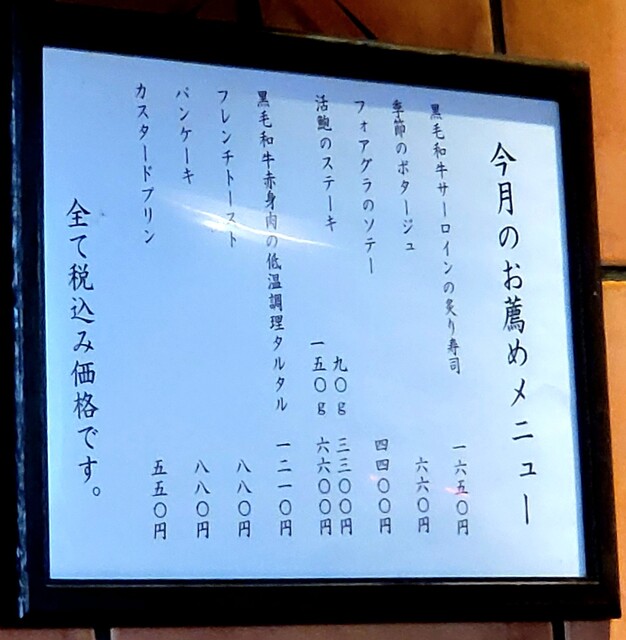 今月のお薦めメニュー
黒毛和牛サーロインの炙り寿司 一六五〇円
季節のポタージュ 六六〇円
フォアグラのソテー 四四〇〇円
活鮑のステーキ 九〇g 三三〇〇円
一五〇g 六六〇〇円
黒毛和牛赤身肉の低温調理タルタル 一二一〇円
フレンチトースト 八八〇円
パンケーキ 八八〇円
カスタードプリン 五五〇円
全て税込み価格です。